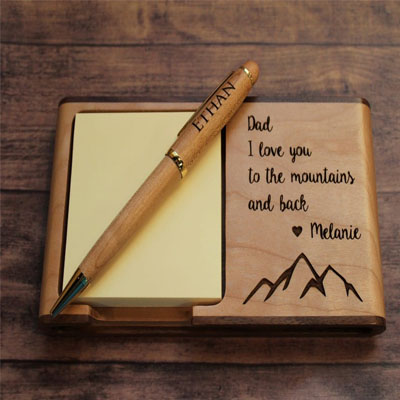 ETHAN
Dad
I love you
to the mountains
and back
♥ Melanie